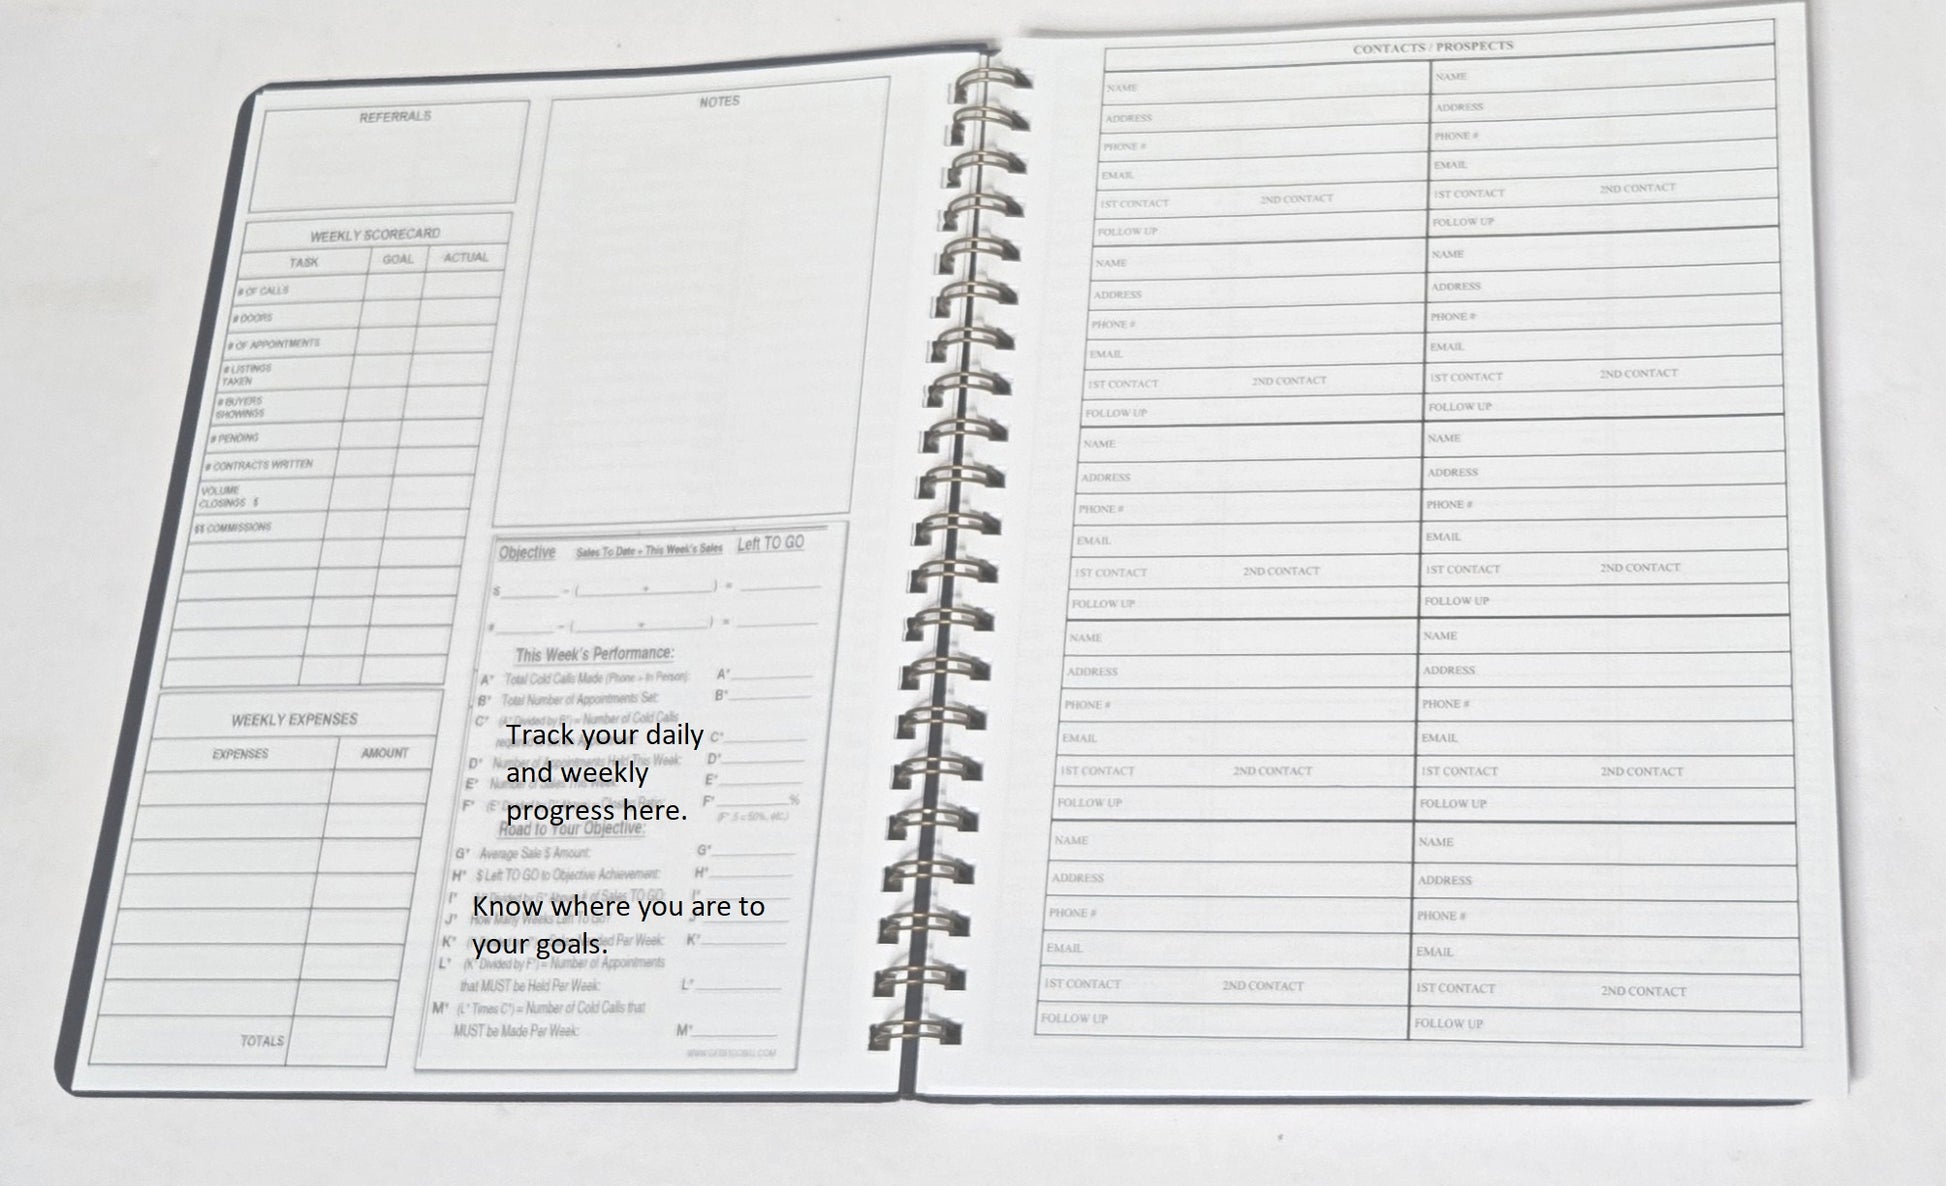 REFERRALS
NOTES
WEEKLY SCORECARD
TASK GOAL ACTUAL
# OF CALLS
# DOORS
# OF APPOINTMENTS
# LISTINGS
TAKEN
# BUYERS
SHOWINGS
# PENDING
# CONTRACTS WRITTEN
VOLUME
CLOSINGS $
$$ COMMISSIONS
WEEKLY EXPENSES
EXPENSES AMOUNT
TOTALS
Objective Sales To Date + This Week's Sales Left TO GO
$ - ( + ) =
# - ( + ) =
This Week's Performance:
A* Total Cold Calls Made (Phone + In Person): A*
B* Total Number of Appointments Set: B*
C* (A* Divided by B*) = Number of Cold Calls
C*
D* Number of Appointments Held This Week: D*
E* E*
F* F* %
(F* .5 = 50%, etc.)
Track your daily
and weekly
progress here.
Road to Your Objective:
G* Average Sale $ Amount: G*
H* $ Left TO GO to Objective Achievement: H*
I* of Sales TO GO: I*
J* How Many Weeks Left To Go? J*
K* Per Week: K*
Know where you are to
your goals.
L* (K* Divided by F*) = Number of Appointments
that MUST be Held Per Week: L*
M* (L* Times C*) = Number of Cold Calls that
MUST be Made Per Week: M*
CONTACTS / PROSPECTS
NAME NAME
ADDRESS ADDRESS
PHONE # PHONE #
EMAIL EMAIL
1ST CONTACT 2ND CONTACT 1ST CONTACT 2ND CONTACT
FOLLOW UP FOLLOW UP
NAME NAME
ADDRESS ADDRESS
PHONE # PHONE #
EMAIL EMAIL
1ST CONTACT 2ND CONTACT 1ST CONTACT 2ND CONTACT
FOLLOW UP FOLLOW UP
NAME NAME
ADDRESS ADDRESS
PHONE # PHONE #
EMAIL EMAIL
1ST CONTACT 2ND CONTACT 1ST CONTACT 2ND CONTACT
FOLLOW UP FOLLOW UP
NAME NAME
ADDRESS ADDRESS
PHONE # PHONE #
EMAIL EMAIL
1ST CONTACT 2ND CONTACT 1ST CONTACT 2ND CONTACT
FOLLOW UP FOLLOW UP
NAME NAME
ADDRESS ADDRESS
PHONE # PHONE #
EMAIL EMAIL
1ST CONTACT 2ND CONTACT 1ST CONTACT 2ND CONTACT
FOLLOW UP FOLLOW UP